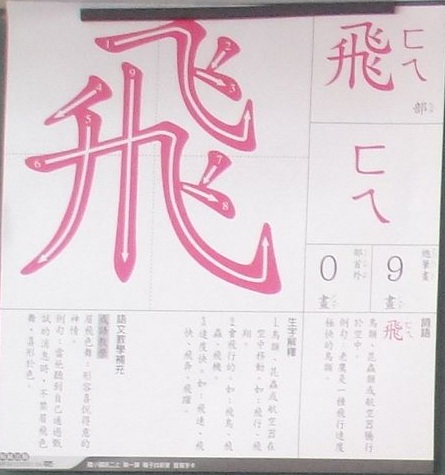 飛
1
2
3
4
5
6
7
8
9
飛 ㄈㄟ
部
ㄈㄟ
總筆畫
9畫
部首外
0畫
詞語
飛 ㄈㄟ
鳥類、昆蟲類或航空器騰行
於空中。
例句:老鷹是一種飛行速度
極快的鳥類。
生字解釋
1.鳥類、昆蟲或航空器在
空中移動。如:飛行、飛
翔。
2.會飛行的。如:飛鳥、飛
蟲、飛機。
3.速度快。如:飛速、飛
快、飛奔、飛躍。
語文教學補充
成語教學
眉飛色舞:形容喜悅得意的
神情。
例句:當他聽到自己通過徵
試的消息時,不禁眉飛色
舞,喜形於色。